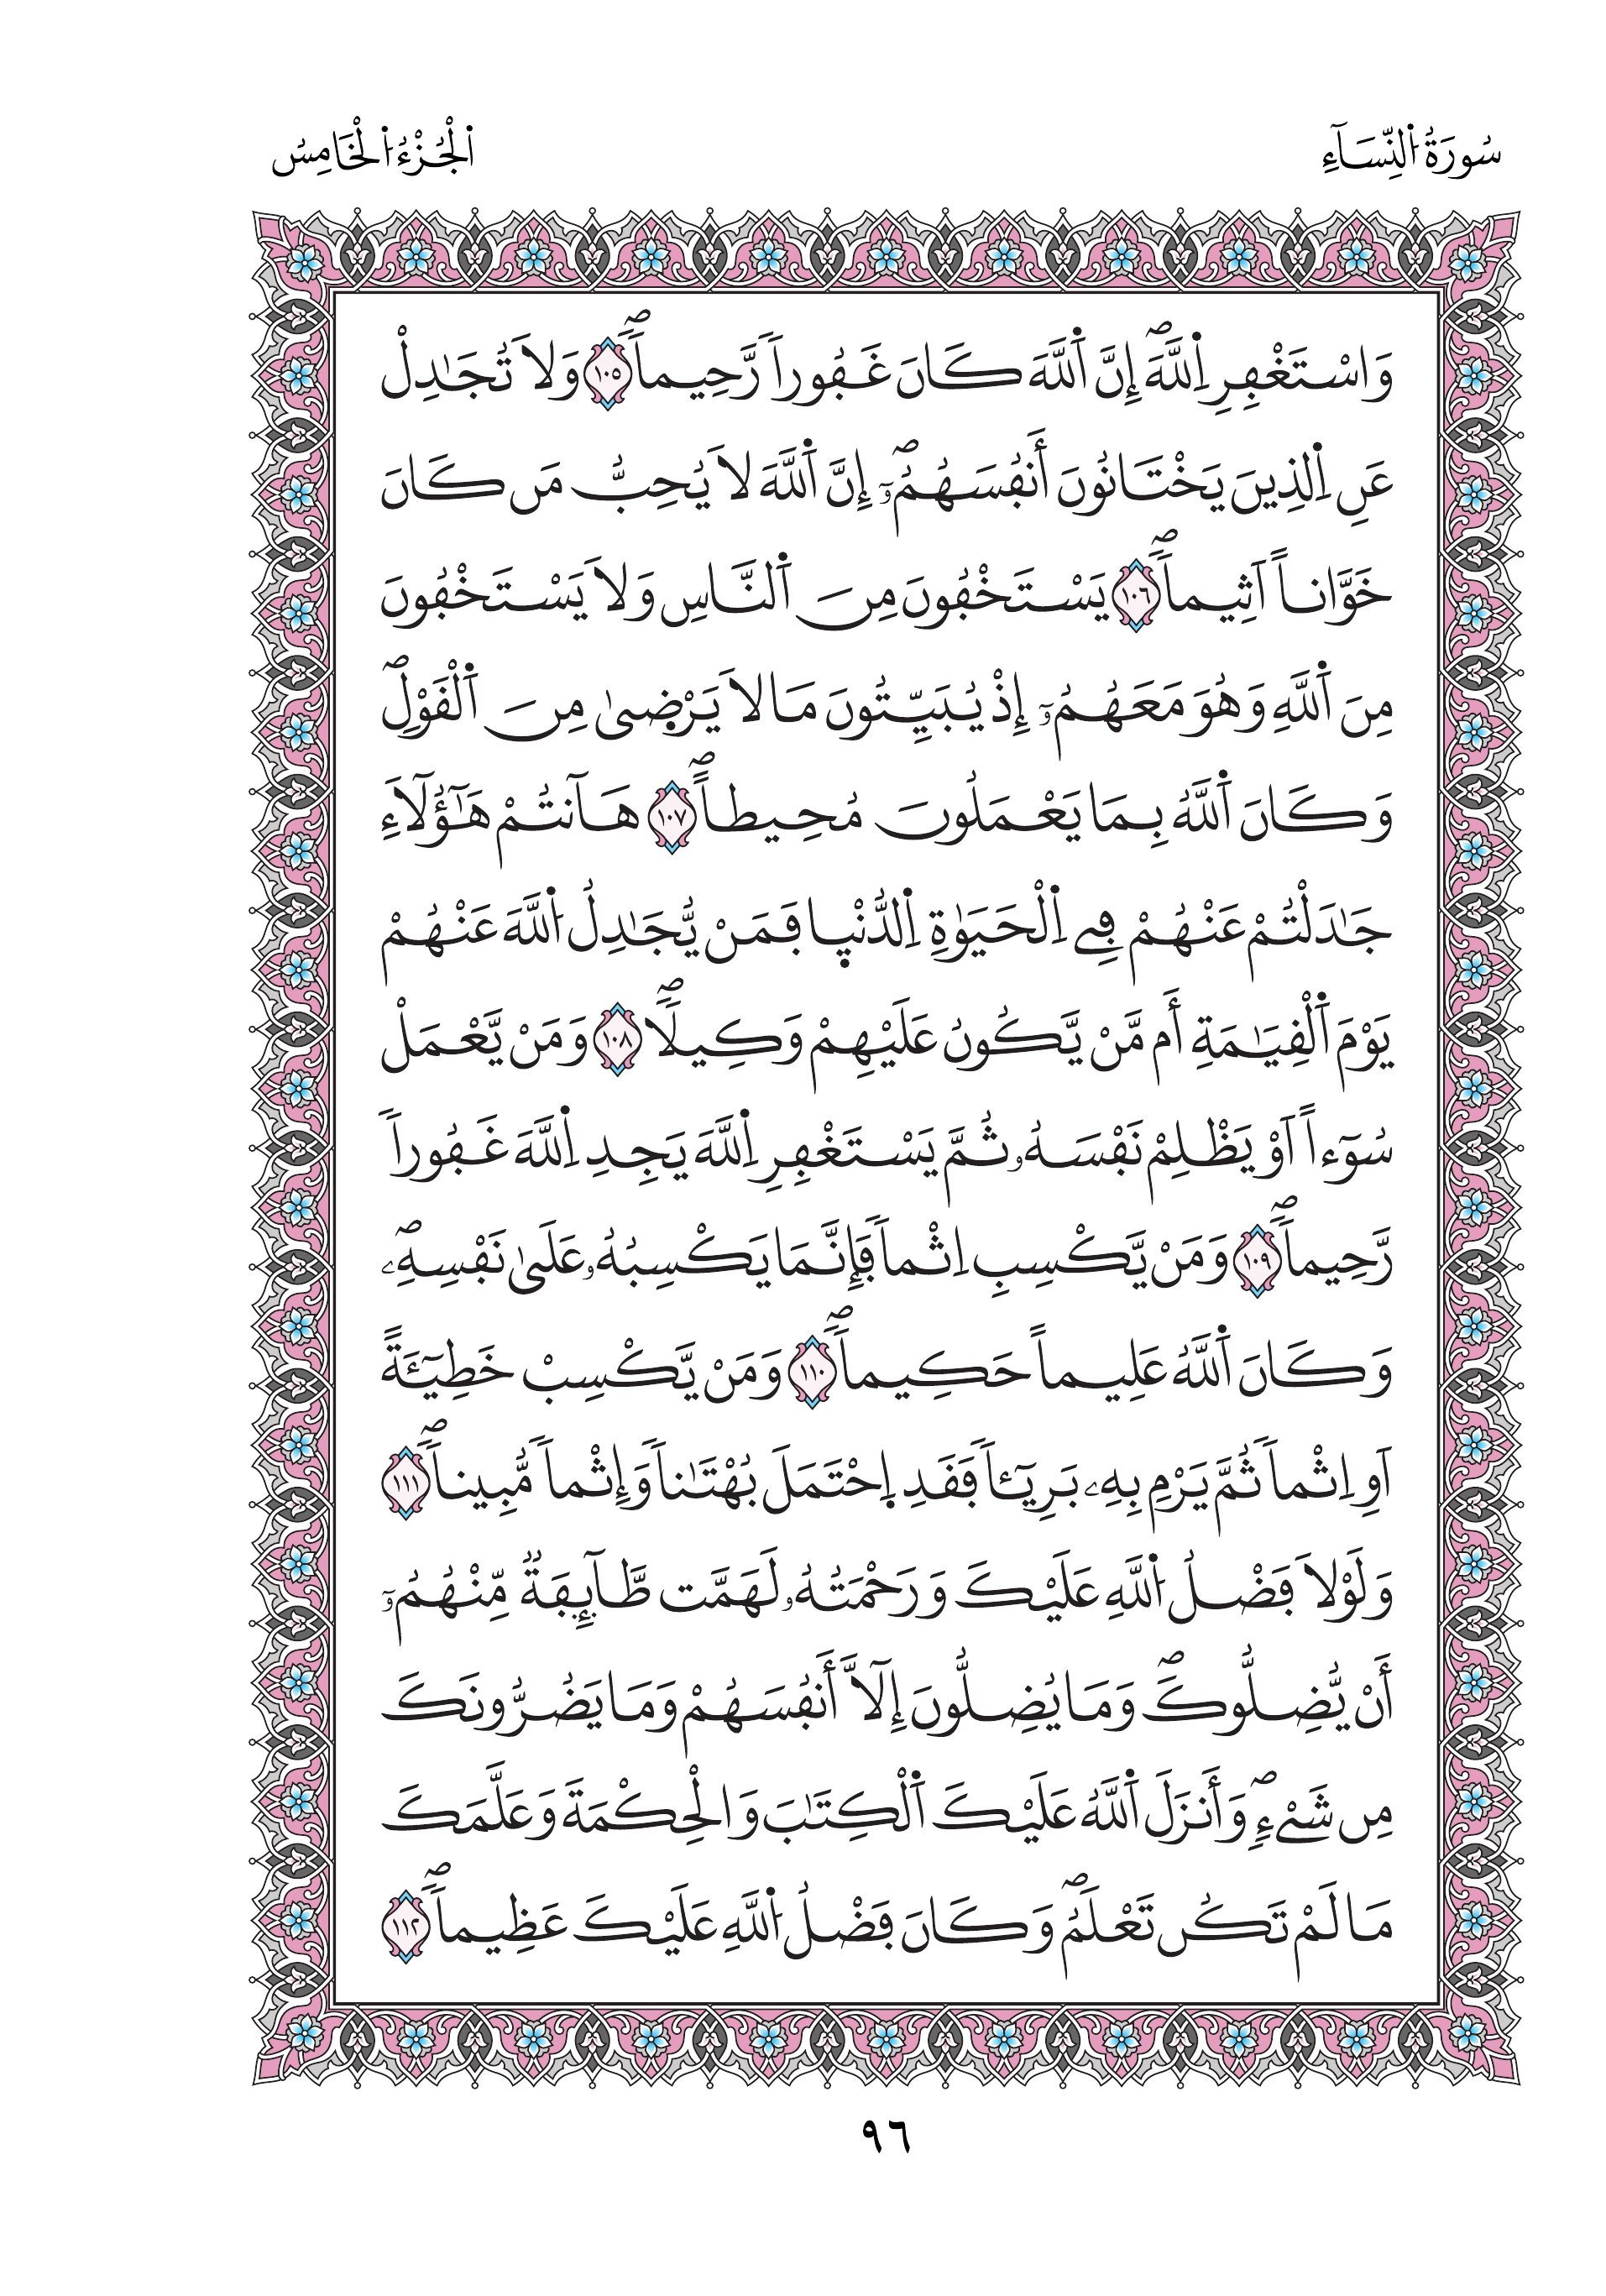 سُورَةُ اُ۬لنِّسَآءِ
اَ۬لْجُزْءُ اُ۬لْخَامِسُ
وَاسْتَغْفِرِ اِ۬للَّهَۖ إِنَّ اَ۬للَّهَ كَانَ غَفُوراٗ رَّحِيماٗۖ ١٠٥ وَلَا تُجَٰدِلْ
عَنِ اِ۬لذِينَ يَخْتَانُونَ أَنفُسَهُمُۥٓۖ إِنَّ اَ۬للَّهَ لَا يُحِبُّ مَن كَانَ
خَوَّاناً اَثِيماٗۖ ١٠٦ يَسْتَخْفُونَ مِنَ اَ۬لنَّاسِ وَلَا يَسْتَخْفُونَ
مِنَ اَ۬للَّهِ وَهُوَ مَعَهُمُۥٓ إِذْ يُبَيِّتُونَ مَا لَا يَرْض۪يٰ مِنَ اَ۬لْقَوْلِۖ
وَكَانَ اَ۬للَّهُ بِمَا يَعْمَلُونَ مُحِيطاًۖ ١٠٧ هَآنتُمْ هَٰٓؤُلَآءِ
جَٰدَلْتُمْ عَنْهُمْ فِے اِ۬لْحَيَوٰةِ اِ۬لدُّنْي۪ا فَمَنْ يُّجَٰدِلُ اُ۬للَّهَ عَنْهُمْ
يَوْمَ اَ۬لْقِيَٰمَةِ أَم مَّنْ يَّكُونُ عَلَيْهِمْ وَكِيلاٗۖ ١٠٨ وَمَنْ يَّعْمَلْ
سُوٓءاً اَوْ يَظْلِمْ نَفْسَهُۥ ثُمَّ يَسْتَغْفِرِ اِ۬للَّهَ يَجِدِ اِ۬للَّهَ غَفُوراٗ
رَّحِيماٗۖ ١٠٩ وَمَنْ يَّكْسِبِ اِثْماٗ فَإِنَّمَا يَكْسِبُهُۥ عَلَىٰ نَفْسِهِۦۖ
وَكَانَ اَ۬للَّهُ عَلِيماً حَكِيماٗۖ ١١٠ وَمَنْ يَّكْسِبْ خَطِيٓـَٔةً
اَوِ اِثْماٗ ثُمَّ يَرْمِ بِهِۦ بَرِيٓـٔاٗ فَقَدِ اِ۪حْتَمَلَ بُهْتَٰناٗ وَإِثْماٗ مُّبِيناٗۖ ١١١
وَلَوْلَا فَضْلُ اُ۬للَّهِ عَلَيْكَ وَرَحْمَتُهُۥ لَهَمَّت طَّآئِفَةٌ مِّنْهُمُۥٓ
أَنْ يُّضِلُّوكَۖ وَمَا يُضِلُّونَ إِلَّآ أَنفُسَهُمْ وَمَا يَضُرُّونَكَ
مِن شَےْءٖۖ وَأَنزَلَ اَ۬للَّهُ عَلَيْكَ اَ۬لْكِتَٰبَ وَالْحِكْمَةَ وَعَلَّمَكَ
مَا لَمْ تَكُن تَعْلَمُۖ وَكَانَ فَضْلُ اُ۬للَّهِ عَلَيْكَ عَظِيماٗۖ ١١٢
٩٦